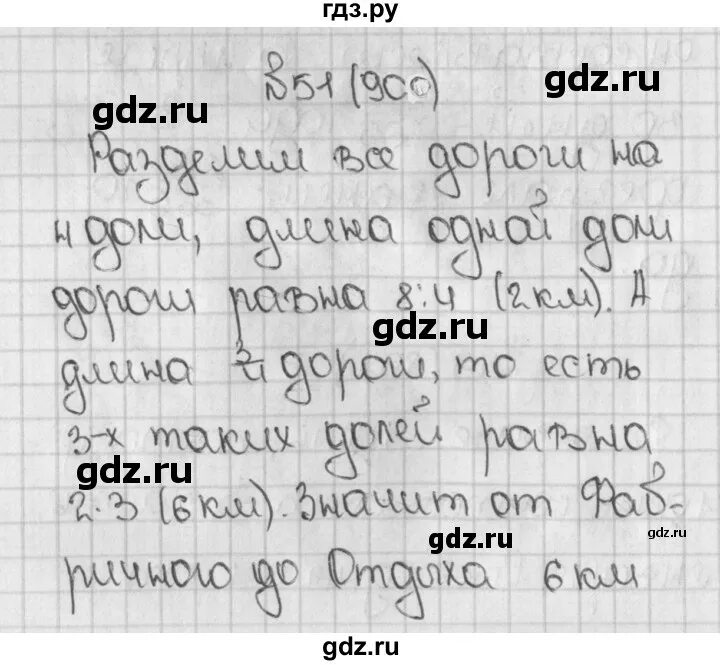 гдз.ру
№51 (900)
gdz.ru
gdz.ru
Разделим все дороги на
4 доли, длина одной доли
дороги равна 8:4 (2 км). А
gdz.ru
длина 3/4 дороги, то есть
3-х таких долей равна
gdz.ru
2·3 (6 км). Значит от Фаб-
gdz.ru
gdz.ru
ричного до Отдыха 6 км
gdz.ru